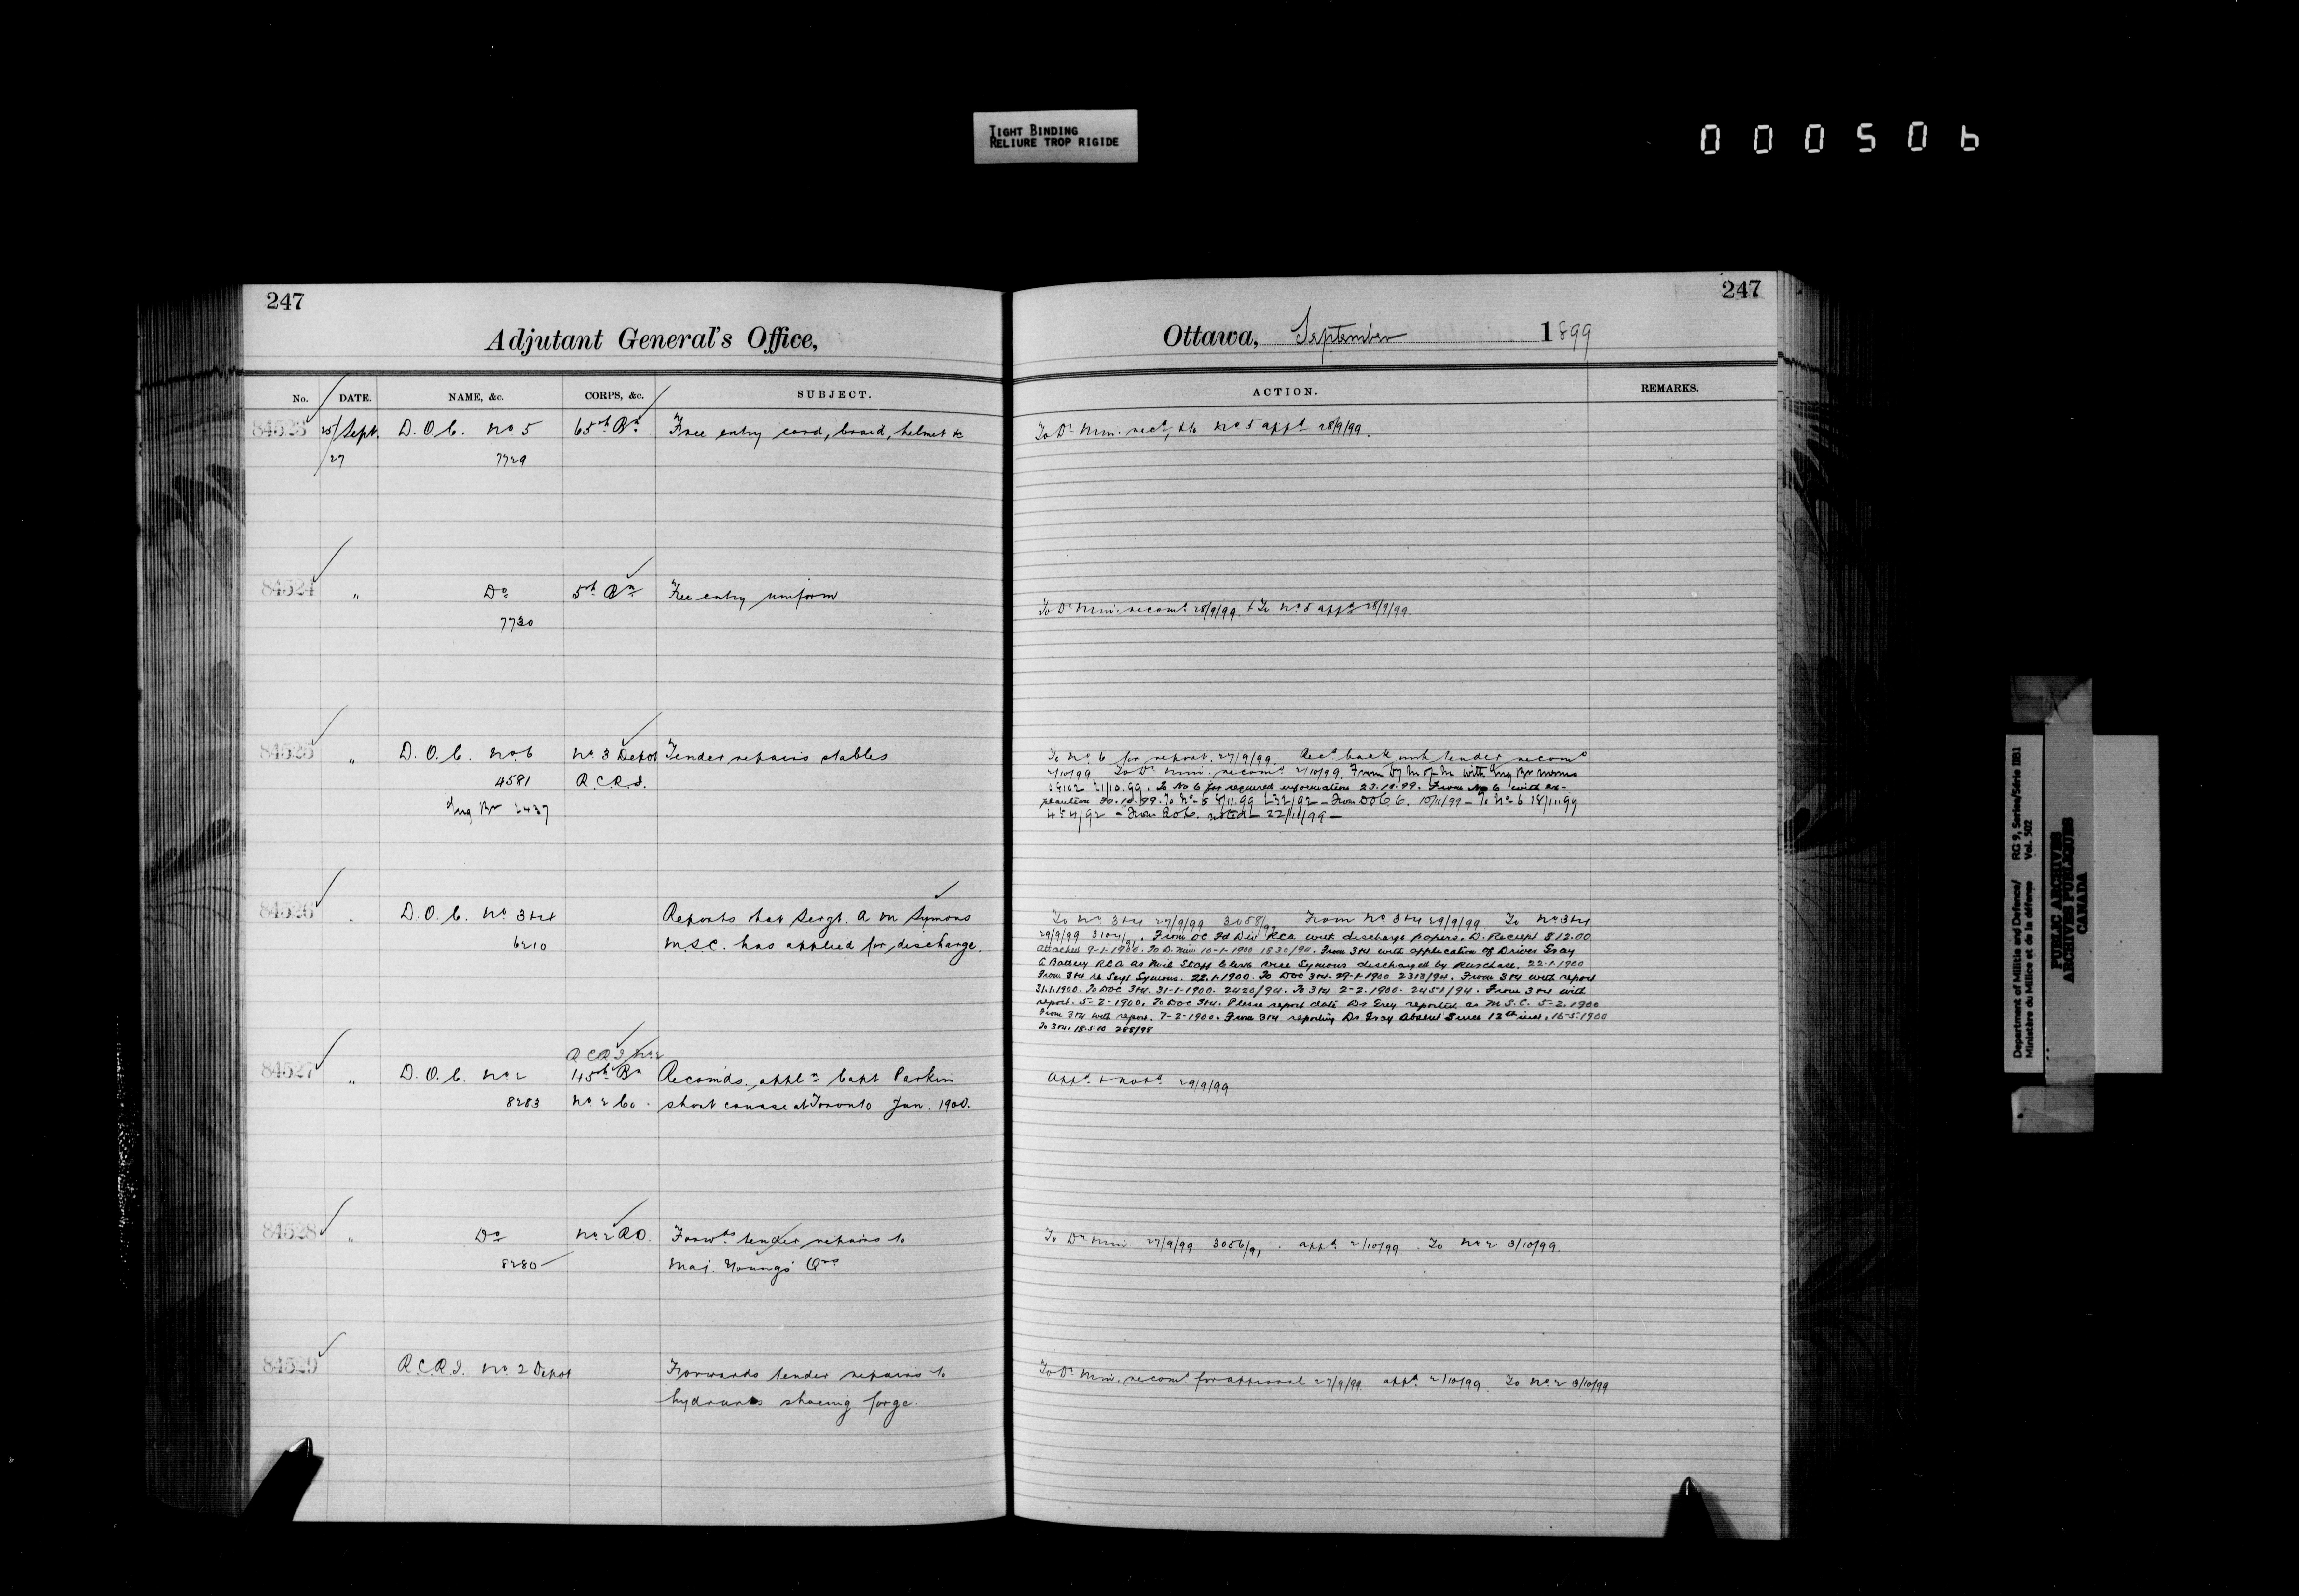 TIGHT BINDING
RELIURE TROP RIGIDE
000506
247
Adjutant General's Office,
No. DATE. NAME, &c. CORPS, &c. SUBJECT.
84523 25/Sept. D.O.C. No 5 65th Bn Free entry cord, braid, helmet &c
27 7729
84524 " Do 5th Bn Free entry uniform
7730
84525 " D.O.C. No 6 No 3 Depot Tender repairs stables
4581 R.C.R.I.
Eng Br 2437
84526 D.O.C. No 3&4 Reports that Sergt. A M Symons
6210 M.S.C. has applied for discharge.
R.C.R.I No 2
84527 " D.O.C. No 2 45th Bn Recomds. appln Capt Parkin
8283 No 2 Co. short course at Toronto Jan. 1900.
84528 " Do No 2 R.D. Forwds tender repairs to
8280 Maj. Young's Qrs
84529 R.C.R.I. No 2 Depot Forwards tender repairs to
hydrants shoeing forge.
247
Ottawa, September 1899
ACTION. REMARKS.
To Dr Min. recd, No 5 appd 28/9/99.
To Dr Min. recomd 28/9/99. & To No 5 appd 28/9/99.
To No 6 for report. 27/9/99. Recd back with tender recomd
2/10/99 To Dr Min. recomd 2/10/99. From Dy M of M with Eng Br memo
21/10.99. To No 6 for required information 23.10.99. From No 6 with ex-
planation 30.10.99. To No 5 8/11.99 From D.O.C 6. 10/11/99 – To No 6 18/11.99
454/92 – From DOC. noted – 22/11/99 –
To No 3&4 27/9/99 3058/91 From No 3&4 29/9/99. To No 3&4
29/9/99 3104/91. From OC Fd Div RCA with discharge papers, D. Receipt $12.00
attached 9-1-1900. To D. Min 10-1-1900 1830/94. From 3&4 with application of Driver Gray
C Battery RCA as Mil Staff Clerk vice Symons discharged by Purchase. 22-1-1900
From 3&4 re Sergt Symons. 22.1.1900. To DOC 3&4. 29-1-1900 2313/94. From 3&4 with report
31.1.1900. To DOC 3&4. 31-1-1900. 2420/94. To 3&4 2-2.1900. 2451/94. From 3&4 with
report. 5-2-1900. To DOC 3&4. Please report date Dr Gray reported as M.S.C. 5-2.1900
From 3&4 with report. 7-2-1900. From 3&4 reporting Dr Gray Absent Since 12th inst, 16-5-1900
To 3&4. 18.5.00 288/98
Appd & notd 29/9/99
To Dr Min 27/9/99 3056/91. appd 2/10/99. To No 2 3/10/99.
To Dr Min. recomd for approval 27/9/99. appd 2/10/99. To No 2 3/10/99
Department of Militia and Defence/ RG 9, Series/Série IIB1
Ministère du Milice et de la défense Vol. 502
PUBLIC ARCHIVES
ARCHIVES PUBLIQUES
CANADA